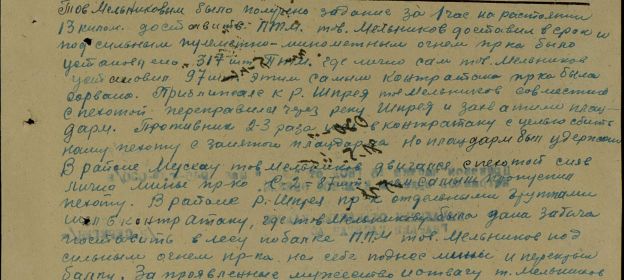 Тов Мельниковым было получено задание за 1 час на расстоянии
13 килом. доставить П.Т.М. тов. Мельников доставил в срок и
под сильным пулеметно-минометным огнем пр-ка было
установлено 317 шт П.Т.М. где лично сам тов. Мельников
установил 97 шт этим самым контратака пр-ка была
сорвана. Приближаясь к р. Шпрея тов Мельников совместно
с пехотой переправился через реку Шпрея и захватили плац-
дарм. Противник 2-3 раза в контратаку с целью сбить
нашу пехоту с занятого плацдарма но плацдарм был удержан
В районе тов Мельников двигался с пехотой сняв
лично мины пр-ка 87 самым пропустил
пехоту. В районе р. Шпрея пр-к отдельными группами
шел в контратаку, где тов Мельникову была дана задача
поставить в лесу по балке П.Т.М тов. Мельников под
сильным огнем пр-ка, на себе поднес мины и перекрыл
балку. За проявленные мужество и отвагу т. Мельников